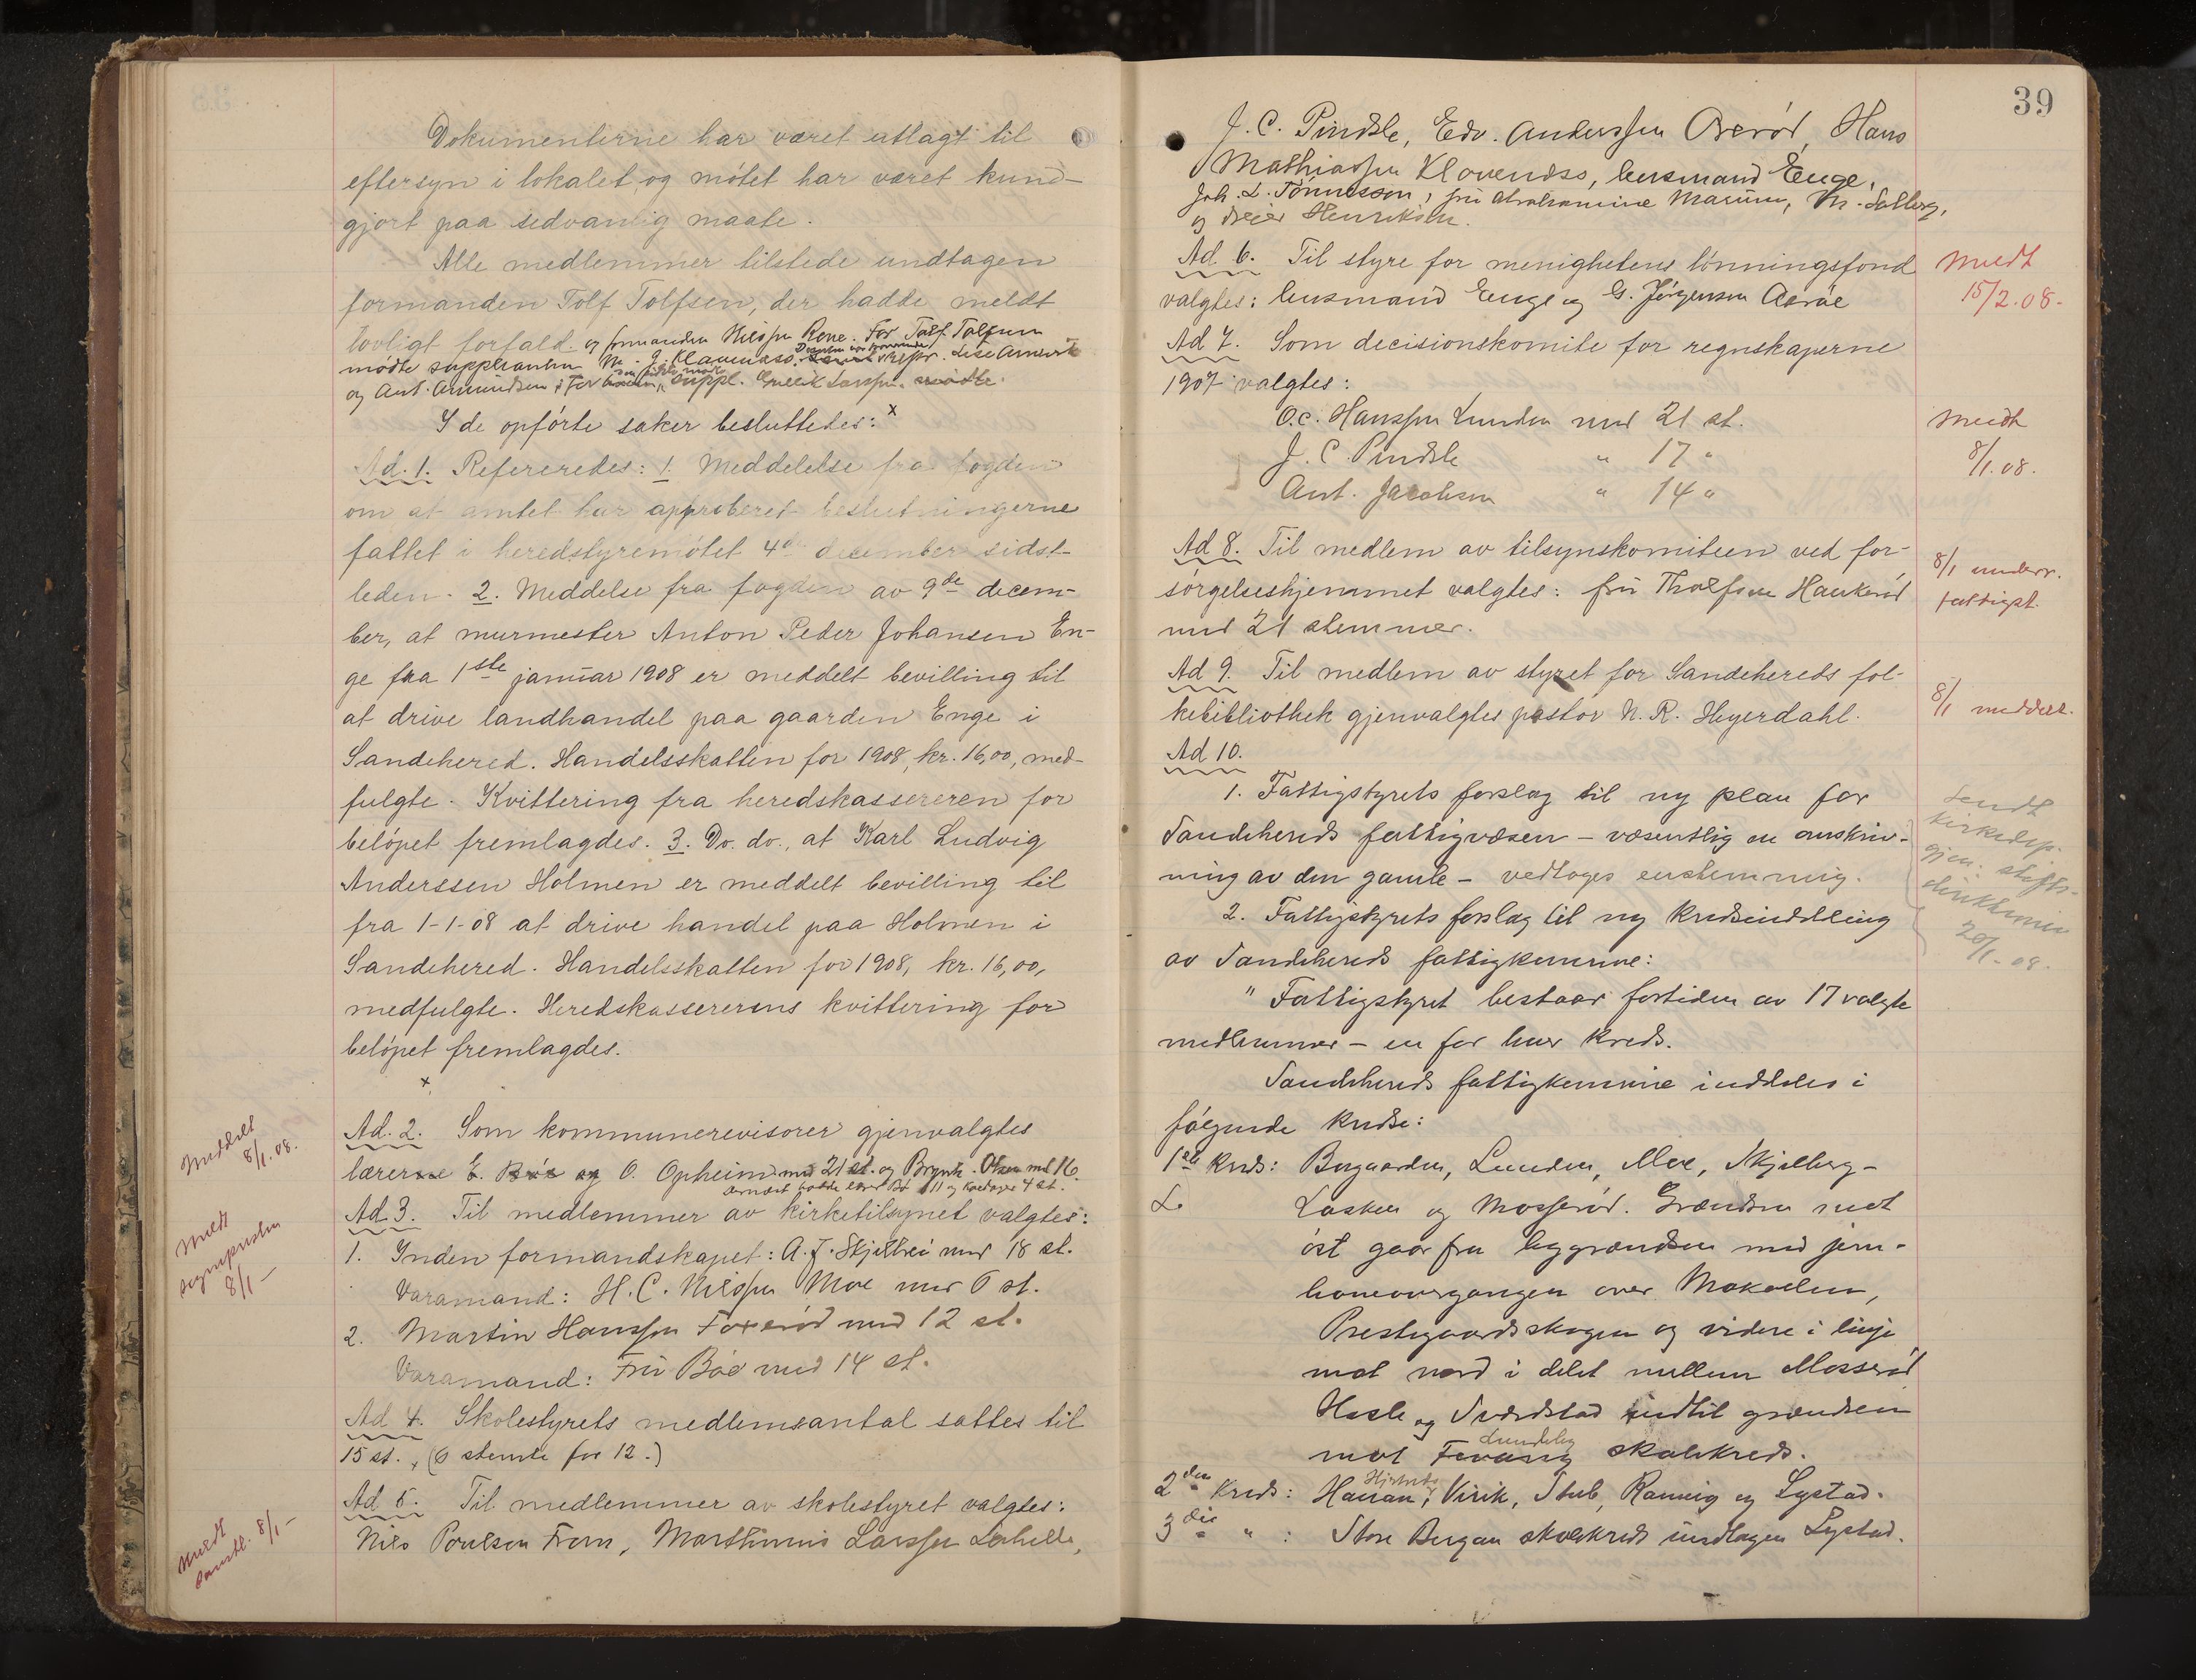 Dokumenterne har været utlagt til
eftersyn i lokalet og mötet har været kund-
gjort paa sedvanlig maate.
Alle medlemmer tilstede undtagen
formanden Tolf Tolfsen, der hadde meldt
lovligt forfald. og formanden Nilssen Rove. For Tolf Tolfsen
mödte suppleanten M. J. Klavenæss.
og Ant. Amundsen suppl. Gullik Larssen mödte.
I de opförte saker besluttedes: x
Ad. 1. Refereredes: 1. Meddelelse fra fogden
om at amtet har approberet beslutningerne
fattet i heredstyremötet 4de december sidst-
leden. 2. Meddelse fra fogden av 9de decem-
ber, at murmester Anton Peder Johansen En-
ge fra 1ste januar 1908 er meddelt bevilling til
at drive landhandel paa gaarden Enge i
Sandehered. Handelsskatten for 1908, kr. 16,00, med-
fulgte. Kvittering fra heredskassereren for
belöpet fremlagdes. 3. Do. do., at Karl Ludvig
Anderssen Holmen er meddelt bevilling til
fra 1-1-08 at drive handel paa Holmen i
Sandehered. Handelsskatten for 1908, kr. 16,00,
medfulgte. Heredskassererens kvittering for
belöpet fremlagdes.
x
Meddelt
8/1.08.
Ad. 2. Som kommunerevisorer gjenvalgtes
lærerne E. Böe og O. Opheim med 21 st. og Brynh. Olsen med 16.
dernæst hadde lærer Bö 11 og 4 st.
Meldt
sogneprsten
8/1 -
Ad. 3. Til medlemmer av kirketilsynet valgtes:
1. Inden formandskapet: A. F. Skjelbrei med 18 st.
Varamand: H. C. Nilssen Moe med 6 st.
2. Martin Hanssen Foxeröd med 12 st.
Varamand: Fru Böe med 14 st.
Ad 4. Skolestyrets medlemsantal sattes til
15 st. (6 stemte for 12.)
Meldt
8/1 -
Ad 5. Til medlemmer av skolestyret valgtes:
Nils Poulsen Fram, Marthinius Larssen Lahelle,
39
J. C. Pindsle, Edv. Anderssen Oseröd, Hans
Mathiassen Klavenæss, lensmand Enge,
Joh. L. Tönnesson, fru Abrahamine Marum, M. Solberg,
og Henriksen.
Ad. 6. Til styre for menighetens lönningsfond
valgtes: lensmand Enge og G. Jörgensen Aasröe
Meldt
15/2.08.
Ad 7. Som decisionskomite for regnskaperne
1907 valgtes:
O. C. Hanssen Lunden med 21 st.
J. C. Pindsle " 17 "
Ant. Jacobsen " 14 "
Meldt
8/1.08.
Ad 8. Til medlem av tilsynskomiteen ved for-
sörgelseshjemmet valgtes: fru Thalfsen Haukeröd
med 21 stemmer.
8/1 underr.
fattigst.
Ad 9. Til medlem av styret for Sandehereds fol-
kebibliothek gjenvalgtes pastor N. R. Heyerdahl.
8/1 meddelt.
Ad 10.
1. Fattigstyrets forslag til ny plan for
Sandehereds fattigvæsen - væsentlig en omskriv-
ning av den gamle - vedtoges enstemmig.
2. Fattigstyrets forslag til ny kredsinddeling
av Sandehereds fattigkommune:
Sendt
kirkedep.
gjen. stifts-
direktionen
20/1-08.
" Fattigstyret bestaar fortiden av 17 valgte
medlemmer - en for hver kreds.
Sandehereds fattigkommune inddeles i
fölgende kredse:
1ste kreds: Bugaarden, Lunden, Moe, Skjelberg-
Lasken og Mosseröd. Grændsen mot
öst gaar fra bygrændsen med jern-
baneovergangen over Mokollen,
Prestegaardsskogen og videre i linje
mot nord i delet mellem Mosseröd
Hasle og Sverdstad indtil grændsen
mot Fevang Lundeby skolekreds.
2den kreds: Haslan, Hjertnes, Virik, Stub, Ranvig og Lystad.
3die " : Store Bergan skolekreds undtagen Lystad.